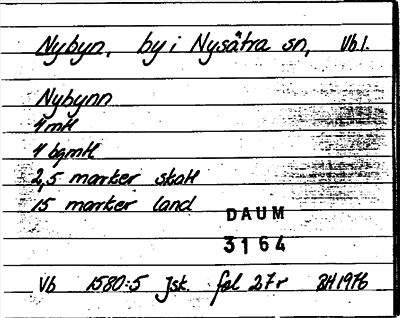 Nybyn, by i Nysätra sn, Vb l.
Nybynn
4 mtl
4 bgmtl
2,5 marker skatt
15 marker land
DAUM
3164
Vb 1580:5 Jsk. fol 27r BH 1976